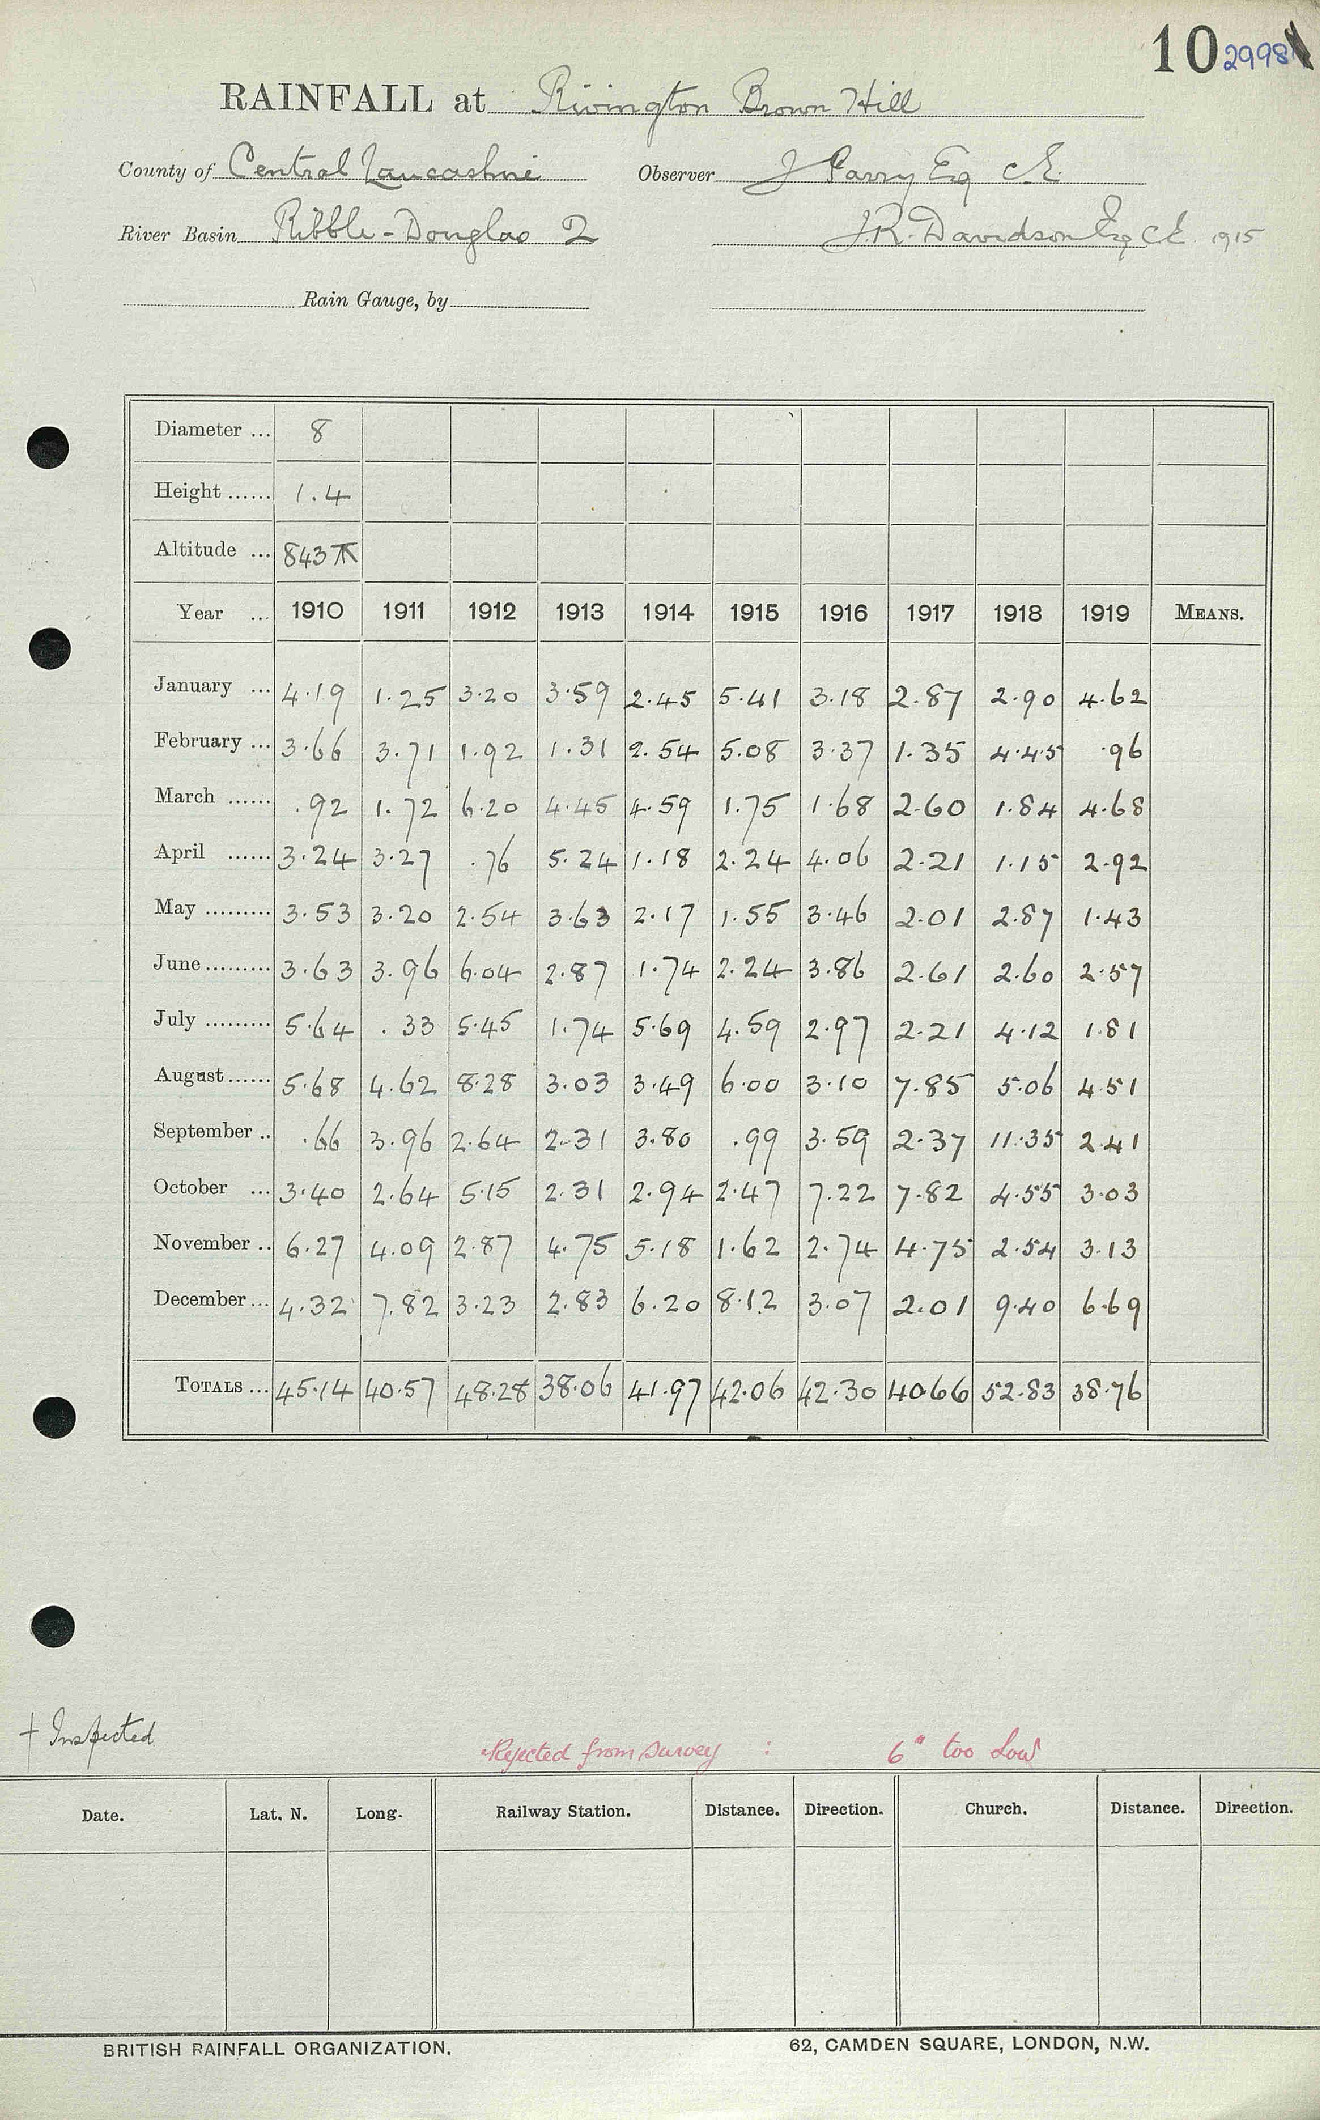 10 2998
RAINFALL at Rivington Brown Hill
County of Central Lancashire Observer J Parry Esq C.E.
River Basin Ribble-Douglas 2 J.R. Davidson Esq C.E. 1915
Rain Gauge, by
Diameter ... 8
Height ...... 1.4
Altitude ... 843
Year ... 1910 1911 1912 1913 1914 1915 1916 1917 1918 1919 MEANS.
January ... 4.19 1.25 3.20 3.59 2.45 5.41 3.18 2.87 2.90 4.62
February ... 3.66 3.71 1.92 1.31 2.54 5.08 3.37 1.35 4.45 .96
March ...... .92 1.72 6.20 4.45 4.59 1.75 1.68 2.60 1.84 4.68
April ...... 3.24 3.27 .76 5.24 1.18 2.24 4.06 2.21 1.15 2.92
May ......... 3.53 3.20 2.54 3.63 2.17 1.55 3.46 2.01 2.87 1.43
June ......... 3.63 3.96 6.04 2.87 1.74 2.24 3.86 2.61 2.60 2.57
July ......... 5.64 .33 5.45 1.74 5.69 4.59 2.97 2.21 4.12 1.81
August ...... 5.68 4.62 8.28 3.03 3.49 6.00 3.10 7.85 5.06 4.51
September .. .66 3.96 2.64 2.31 3.80 .99 3.59 2.37 11.35 2.41
October ... 3.40 2.64 5.15 2.31 2.94 2.47 7.22 7.82 4.55 3.03
November .. 6.27 4.09 2.87 4.75 5.18 1.62 2.74 4.75 2.54 3.13
December ... 4.32 7.82 3.23 2.83 6.20 8.12 3.07 2.01 9.40 6.69
TOTALS ... 45.14 40.57 48.28 38.06 41.97 42.06 42.30 40.66 52.83 38.76
† Inspected
Rejected from Survey : 6" too low
Date. Lat. N. Long. Railway Station. Distance. Direction. Church. Distance. Direction.
BRITISH RAINFALL ORGANIZATION. 62, CAMDEN SQUARE, LONDON, N.W.